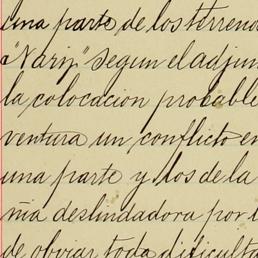 una parte de los terreno
"Nariz" segun el adjun
la colocacion probable
ventura un conflicto en
una parte y los de la
ñia deslindadora por l
de obviar toda dificulta